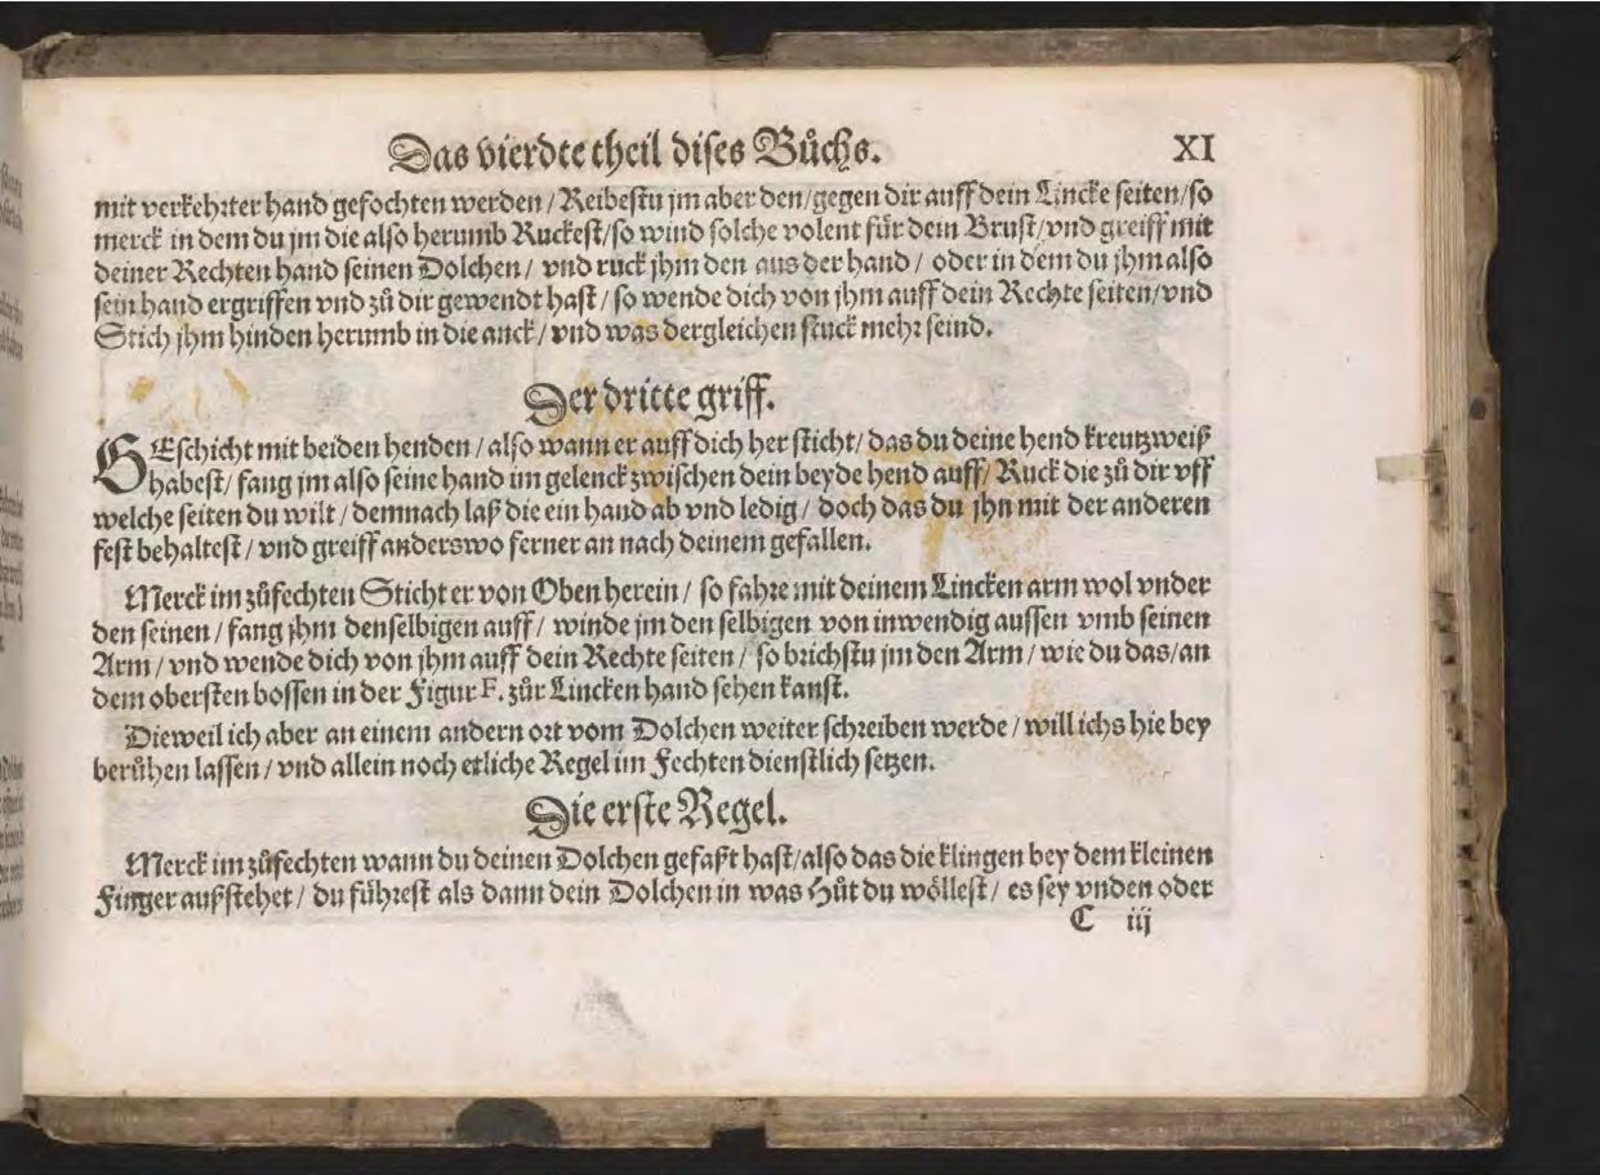 Das vierdte theil dises Bůchs. XI
mit verkehrter hand gefochten werden / Reibestu jm aber den / gegen dir auff dein Lincke seiten / so
merck in dem du jm die also herumb Ruckest / so wind solche volent für dein Brust / vnd greiff mit
deiner Rechten hand seinen Dolchen / vnd ruck jhm den aus der hand / oder in dem du jhm also
sein hand ergriffen vnd zů dir gewendt hast / so wende dich von jhm auff dein Rechte seiten / vnd
Stich jhm hinden herumb in die anck / vnd was dergleichen stuck mehr seind.
Der dritte griff.
GEschicht mit beiden henden / also wann er auff dich her sticht / das du deine hend kreutzweiß
habest / fang jm also seine hand im gelenck zwischen dein beyde hend auff / Ruck die zů dir vff
welche seiten du wilt / demnach laß die ein hand ab vnd ledig / doch das du jhn mit der anderen
fest behaltest / vnd greiff anderswo ferner an nach deinem gefallen.
Merck im zůfechten Sticht er von Oben herein / so fahre mit deinem Lincken arm wol vnder
den seinen / fang jhm denselbigen auff / winde jm den selbigen von inwendig aussen vmb seinen
Arm / vnd wende dich von jhm auff dein Rechte seiten / so brichstu jm den Arm / wie du das / an
dem obersten bossen in der Figur F. zůr Lincken hand sehen kanst.
Dieweil ich aber an einem andern ort vom Dolchen weiter schreiben werde / will ichs hie bey
berůhen lassen / vnd allein noch etliche Regel im Fechten dienstlich setzen.
Die erste Regel.
Merck im zůfechten wann du deinen Dolchen gefaßt hast / also das die klingen bey dem kleinen
Finger außstehet / du führest als dann dein Dolchen in was Hůt du wöllest / es sey vnden oder
C iij